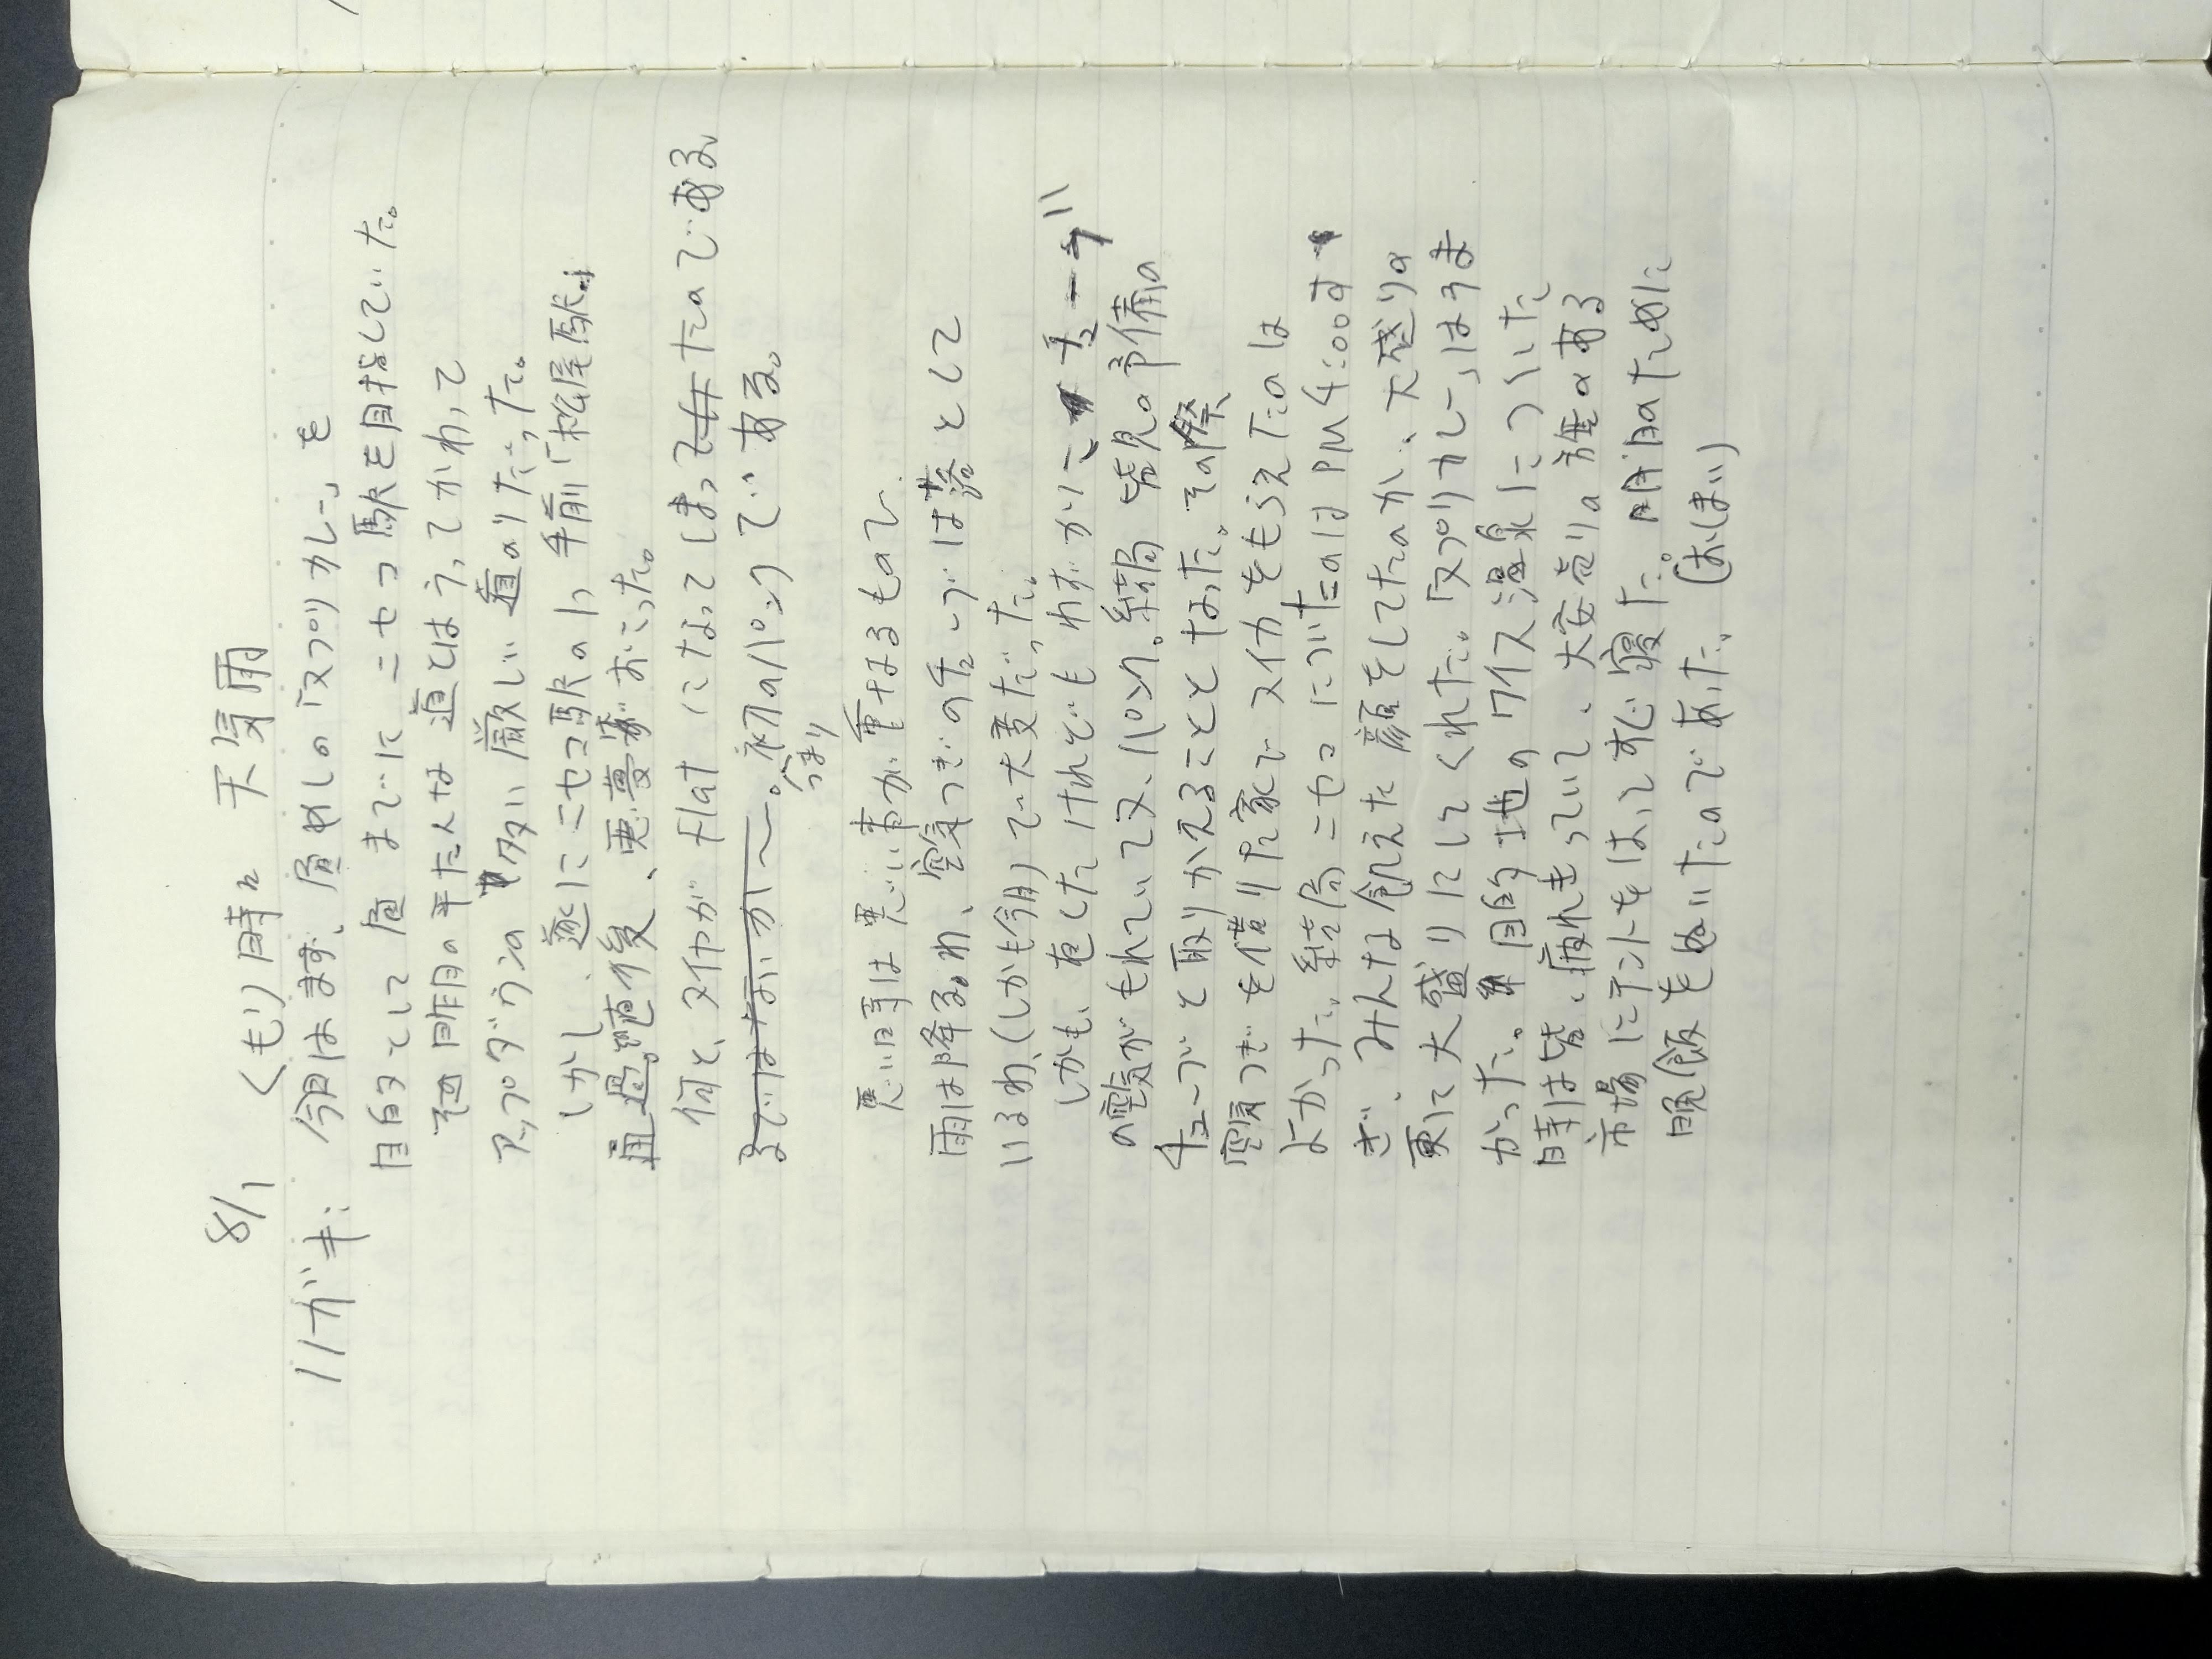 8/1 くもり時々天気雨
ハガキ: 今日はまず、昼めしの「ヌプリカレー」を
目的として 昼までに ニセコ駅を目指していた。
昨日の平たんな道とはうってかわって
アップダウンの多い厳しい道のりだった。
しかし、遂にニセコ駅の1つ手前「松尾駅」
通過直後、悪夢がおこった。
何と、タイヤが flat になってしまったのである
るではないか〜。つまり 初のパンクである。
悪い時は悪い事が重なるもので、
雨は降るわ、空気つぎの先っぽは落として
いるわ、(しかも今朝)で大変だった。
しかも、直したけれどもわずかにチューブ
の空気がもれていて又、パンク。結局 皆見の予備の
チューブと取りかえることとなった。その際
空気つぎを借りた家でスイカをもらえたのは
よかった。結局ニセコについたのはPM4:00す
ぎ、みんな飢えた顔をしてたのか、大盛りの
更に大盛りにしてくれた。「ヌプリカレー」はうま
かった。目的地のワイス温泉についた
時は皆、疲れきっていて、大安売りの旗のある
市場にテントをはってすぐ寝た。明日のために
晩飯もぬいたのであった。(おしまい)